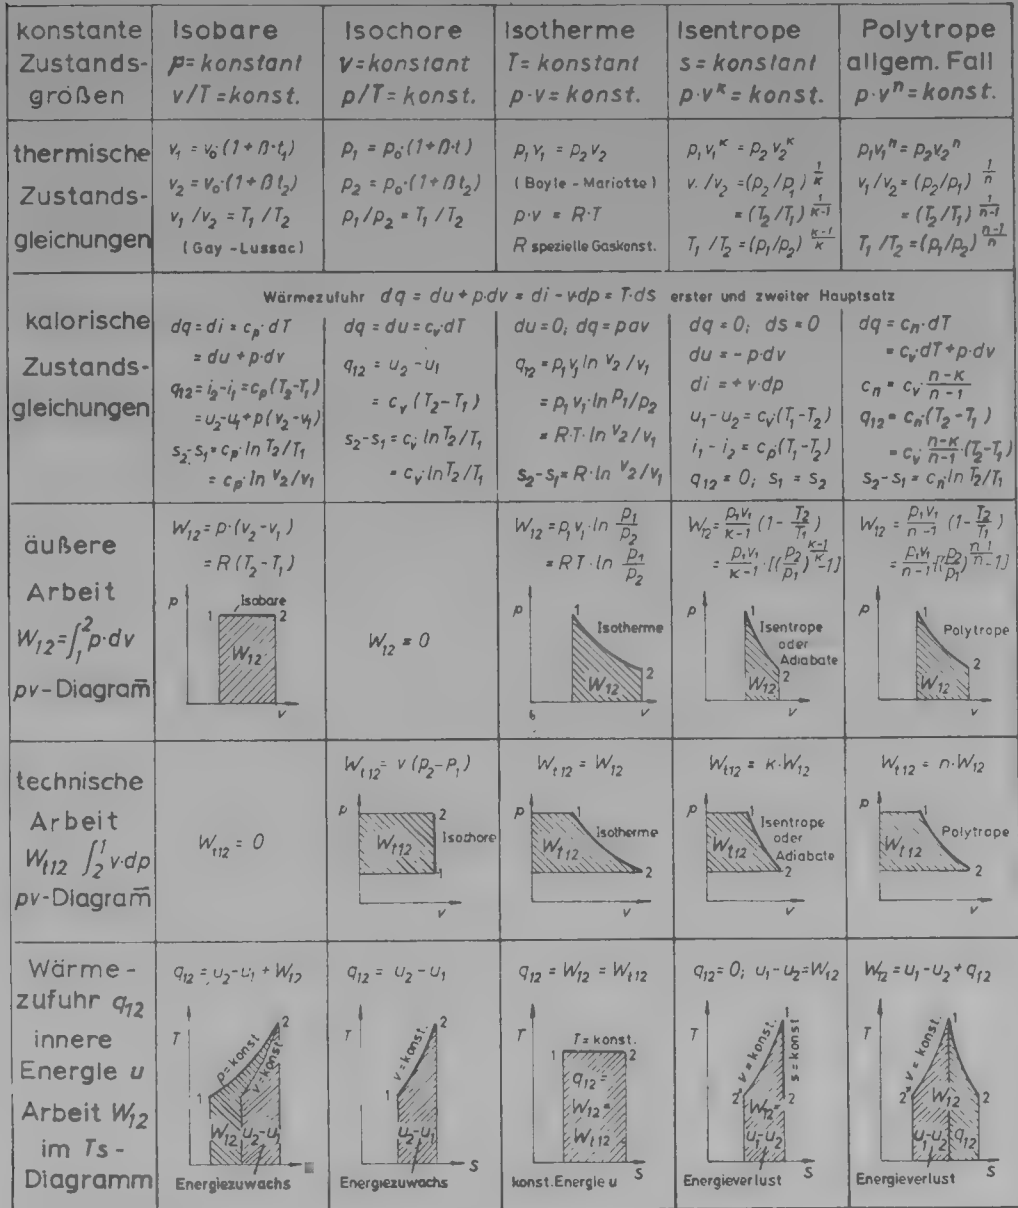 konstante
Zustands-
größen
Isobare
p = konstant
v/T = konst.
Isochore
v = konstant
p/T = konst.
Isotherme
T = konstant
p·v = konst.
Isentrope
s = konstant
p·v^κ = konst.
Polytrope
allgem. Fall
p·v^n = konst.
thermische
Zustands-
gleichungen
v₁ = v₀·(1+β·t₁)
v₂ = v₀·(1+βt₂)
v₁/v₂ = T₁/T₂
(Gay-Lussac)
p₁ = p₀·(1+β·t)
p₂ = p₀·(1+βt₂)
p₁/p₂ = T₁/T₂
p₁v₁ = p₂v₂
(Boyle-Mariotte)
p·v = R·T
R spezielle Gaskonst.
p₁v₁^κ = p₂v₂^κ
v./v₂ = (p₂/p₁)^(1/κ)
= (T₂/T₁)^(1/(κ-1))
T₁/T₂ = (p₁/p₂)^((κ-1)/κ)
p₁v₁^n = p₂v₂^n
v₁/v₂ = (p₂/p₁)^(1/n)
= (T₂/T₁)^(1/(n-1))
T₁/T₂ = (p₁/p₂)^((n-1)/n)
kalorische
Zustands-
gleichungen
Wärmezufuhr dq = du + p·dv = di - v·dp = T·ds erster und zweiter Hauptsatz
dq = di = cₚ·dT
= du + p·dv
q₁₂ = i₂-i₁ = cₚ(T₂-T₁)
= u₂-u₁ + p(v₂-v₁)
s₂-s₁ = cₚ·ln T₂/T₁
= cₚ·ln v₂/v₁
dq = du = cᵥ·dT
q₁₂ = u₂-u₁
= cᵥ(T₂-T₁)
s₂-s₁ = cᵥ·ln T₂/T₁
= cᵥ·ln T₂/T₁
du = 0; dq = pdv
q₁₂ = p₁v₁·ln v₂/v₁
= p₁v₁·ln p₁/p₂
= R·T·ln v₂/v₁
s₂-s₁ = R·ln v₂/v₁
dq = 0; ds = 0
du = -p·dv
di = +v·dp
u₁-u₂ = cᵥ·(T₁-T₂)
i₁-i₂ = cₚ·(T₁-T₂)
q₁₂ = 0; s₁ = s₂
dq = cₙ·dT
= cᵥ·dT + p·dv
cₙ = cᵥ·(n-κ)/(n-1)
q₁₂ = cₙ·(T₂-T₁)
= cᵥ·(n-κ)/(n-1)·(T₂-T₁)
s₂-s₁ = cₙ·ln T₂/T₁
äußere
Arbeit
W₁₂ = ∫₁² p·dv
pv-Diagram̄
W₁₂ = p·(v₂-v₁)
= R(T₂-T₁)
p
Isobare
1
2
W₁₂
v
W₁₂ = 0
W₁₂ = p₁v₁·ln p₁/p₂
= RT·ln p₁/p₂
p
1
Isotherme
2
W₁₂
v
W₁₂ = p₁v₁/(κ-1) (1 - T₂/T₁)
= p₁v₁/(κ-1)·[(p₂/p₁)^((κ-1)/κ) -1]
p
1
Isentrope
oder
Adiabate
2
W₁₂
v
W₁₂ = p₁v₁/(n-1) (1 - T₂/T₁)
= p₁v₁/(n-1)·[(p₂/p₁)^((n-1)/n) -1]
p
1
Polytrope
2
W₁₂
v
technische
Arbeit
Wₜ₁₂ ∫₂¹ v·dp
pv-Diagram̄
Wₜ₁₂ = 0
Wₜ₁₂ = v(p₂-p₁)
p
2
Wₜ₁₂
Isochore
1
v
Wₜ₁₂ = W₁₂
p
1
Isotherme
Wₜ₁₂
2
v
Wₜ₁₂ = κ·W₁₂
p
1
Isentrope
oder
Adiabate
Wₜ₁₂
2
v
Wₜ₁₂ = n·W₁₂
p
1
Polytrope
Wₜ₁₂
2
v
Wärme-
zufuhr q₁₂
innere
Energie u
Arbeit W₁₂
im Ts-
Diagramm
q₁₂ = u₂-u₁ + W₁₂
T
2
p = konst
v = konst
1
W₁₂
u₂-u₁
Energiezuwachs
q₁₂ = u₂-u₁
T
2
v = konst.
1
u₂-u₁
S
Energiezuwachs
q₁₂ = W₁₂ = Wₜ₁₂
T
T = konst.
1
2
q₁₂ =
W₁₂ =
Wₜ₁₂
S
konst. Energie u
q₁₂ = 0; u₁-u₂ = W₁₂
T
1
v = konst.
s = konst
2'
2
W₁₂ =
u₁-u₂
S
Energieverlust
W₁₂ = u₁-u₂ + q₁₂
T
1
v = konst.
2'
2
W₁₂
u₁-u₂
q₁₂
S
Energieverlust